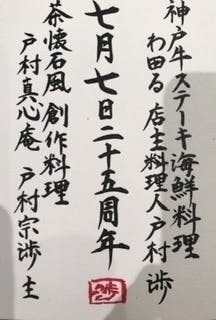 神戸牛ステーキ海鮮料理
わ田る 店主料理人戸村 渉
七月七日二十五周年
茶懐石風 創作料理
戸村真心庵 戸村宗渉 主